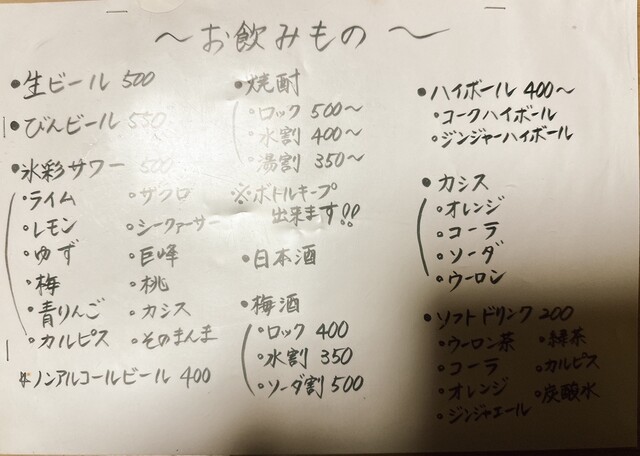 ～お飲みもの～
●生ビール 500
●びんビール 550
●氷彩サワー 500
•ライム •ザクロ
•レモン •シークァーサー
•ゆず •巨峰
•梅 •桃
•青りんご •カシス
•カルピス •そのまんま
※ノンアルコールビール 400
●焼酎
•ロック 500～
•水割 400～
•湯割 350～
※ボトルキープ
出来ます!!
●日本酒
●梅酒
•ロック 400
•水割 350
•ソーダ割 500
●ハイボール 400～
•コークハイボール
•ジンジャーハイボール
●カシス
•オレンジ
•コーラ
•ソーダ
•ウーロン
●ソフトドリンク 200
•ウーロン茶 •緑茶
•コーラ •カルピス
•オレンジ •炭酸水
•ジンジャエール